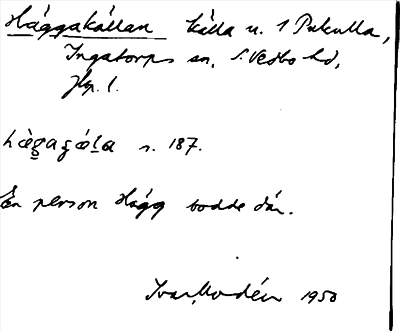 Häggakällan källa u. 1 Pukulla,
Ingatorps sn, S. Vedbo hd,
Jkp. l.
hägaɕäla s. 187.
En person Hägg bodde där.
Ivar Modéer 1950